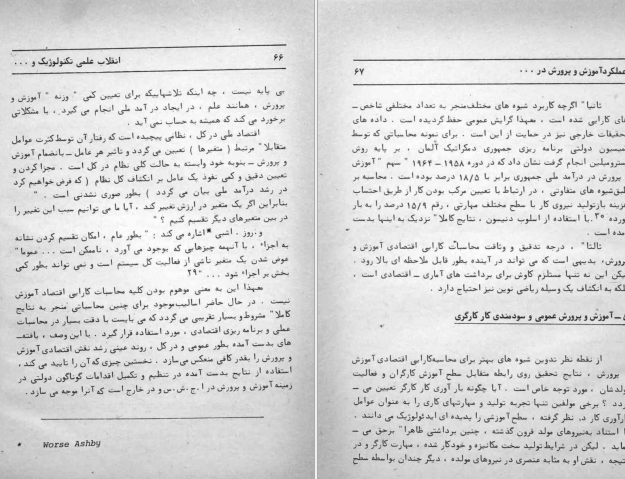 ۶۶ انقلاب علمی تکنولوژیک و ۰۰۰
بی پایه نیست ، چه اینکه تلاشهاییکه برای تعیین کمی " وزنه " آموزش و
پرورش ، همانند علم ، در ایجاد در آمد ملی انجام می گیرد ، با مشکلاتی
برخورد می کند که همیشه به حساب نمی آید .
اقتصاد ملی در کل ، نظامی پیچیده است که رفتار آن توسط کثرت عوامل
متقابلا" مرتبط ( متغیرها ) تعیین می گردد و تاثیر هر عامل ــ بانضمام آموزش
و پرورش ــ بنوبه خود وابسته به حالت کلی نظام در کل است . مجزا کردن و
تعیین دقیق و کمی نفوذ یک عامل بر انکشاف کل نظام ( که فرض خواهیم کرد
در رشد درآمد ملی بیان می گردد ) بطور صوری نشدنی است . "
بنابراین اگر یک متغیر در ارزش تغییر کند ، آیا ما می توانیم سبب این تغییر را
در بین متغیرهای دیگر تقسیم کنیم ؟ "
و.روز . اشبی * اشاره می کند : " بطور عام ، امکان تقسیم کردن نشانه
به اجزاء ، با آنهمه چیزهایی که بوجود می آورد ، ناممکن است ... عموما"
عوض شدن یک متغیر ناشی از فعالیت کل سیستم است و نمی تواند بطور کمی
بخش بر اجزاء شود ... "۲۹
معهذا این به معنی موهوم بودن کلیه محاسبات کارایی اقتصاد آموزش
نیست . در حال حاضر اسالیب موجود برای چنین محاسباتی منجر به نتایج
کاملا" مشروط و بسیار تقریبی می گردد که می بایست با دقت بسیار در محاسبات
عملی و برنامه ریزی اقتصادی ، مورد استفاده قرار گیرد . با این وصف ، یافته‌ــ
های بدست آمده بطور عمومی و در کل ، روند عینی رشد نقش اقتصادی آموزش
و پرورش را بقدر کافی منعکس می‌سازد . نخستین چیزی که آن را تایید می کند ،
استفاده از نتایج بدست آمده در تنظیم و تکمیل اقدامات گوناگون دولتی در
زمینه آموزش و پرورش در ا.ج.ش.س و در خارج است که آنرا موجه می سازد .
* Worse Ashby
عملکرد آموزش و پرورش در ۰۰۰ ۶۷
ثانیا" اگرچه کاربرد شیوه های مختلف منجر به تعداد مختلفی شاخص ــ
های کارایی شده است ، معهذا گرایش عمومی حفظ گردیده است . داده های
تحقیقات خارجی نیز در حمایت از این است . برای نمونه محاسباتی که توسط
دولتی برنامه ریزی جمهوری دمکراتیک آلمان ، بر پایه روش
استرومیلین انجام گرفت نشان داد که در دوره ۱۹۵۸ ــ ۱۹۶۴ " سهم " آموزش
پرورش در درآمد ملی جمهوری برابر با ۱۸/۵ درصد بوده است . محاسبه بر
طبق شیوه های متفاوتی ، در ارتباط با تعیین مرکب بودن کار از طریق احتساب
هزینه بازتولید نیروی کار با سطح مختلف مهارتی ، رقم ۱۵/۹ درصد را به بار
آورده ۳۰. با استفاده از اسلوب دنیسون ، نتایج کاملا" نزدیک به اینها بدست
آمده است .
ثالثا" ، درجه تدقیق و وثاقت محاسبات کارایی اقتصادی آموزش و
پرورش، بدیهی است که می تواند در آینده بطور قابل ملاحظه ای بالا رود .
لیکن این نه تنها مستلزم کاوش برای برداشت های آماری ــ اقتصادی است ،
بلکه به انکشاف یک وسیله ریاضی نوین نیز احتیاج دارد .
ــ آموزش و پرورش عمومی و سودمندی کار کارگری
از نقطه نظر تدوین شیوه های بهتر برای محاسبه کارایی اقتصادی آموزش
پرورش ، نتایج تحقیق روی رابطه متقابل سطح آموزش کارگران و فعالیت
مولدشان ، مورد توجه خاص است . آیا چگونه بار آوری کار کارگر تعیین می ــ
گردد ؟ برخی مولفین تنها تجربه تولید و مهارتهای کاری را به عنوان عوامل
بارآوری کار د. نظر گرفته ، سطح آموزشی را پدیده ای ایدئولوژیک می دانند .
با استناد به نیروهای مولد قرون گذشته ، چنین برداشتی ظاهرا" برحق می ــ
نماید . لیکن در شرایط تولید سخت مکانیزه و خودکار شده ، مهارت کارگر و در
نتیجه ، نقش او به مثابه عنصری در نیروهای مولده ، دیگر چندان بواسطه سطح